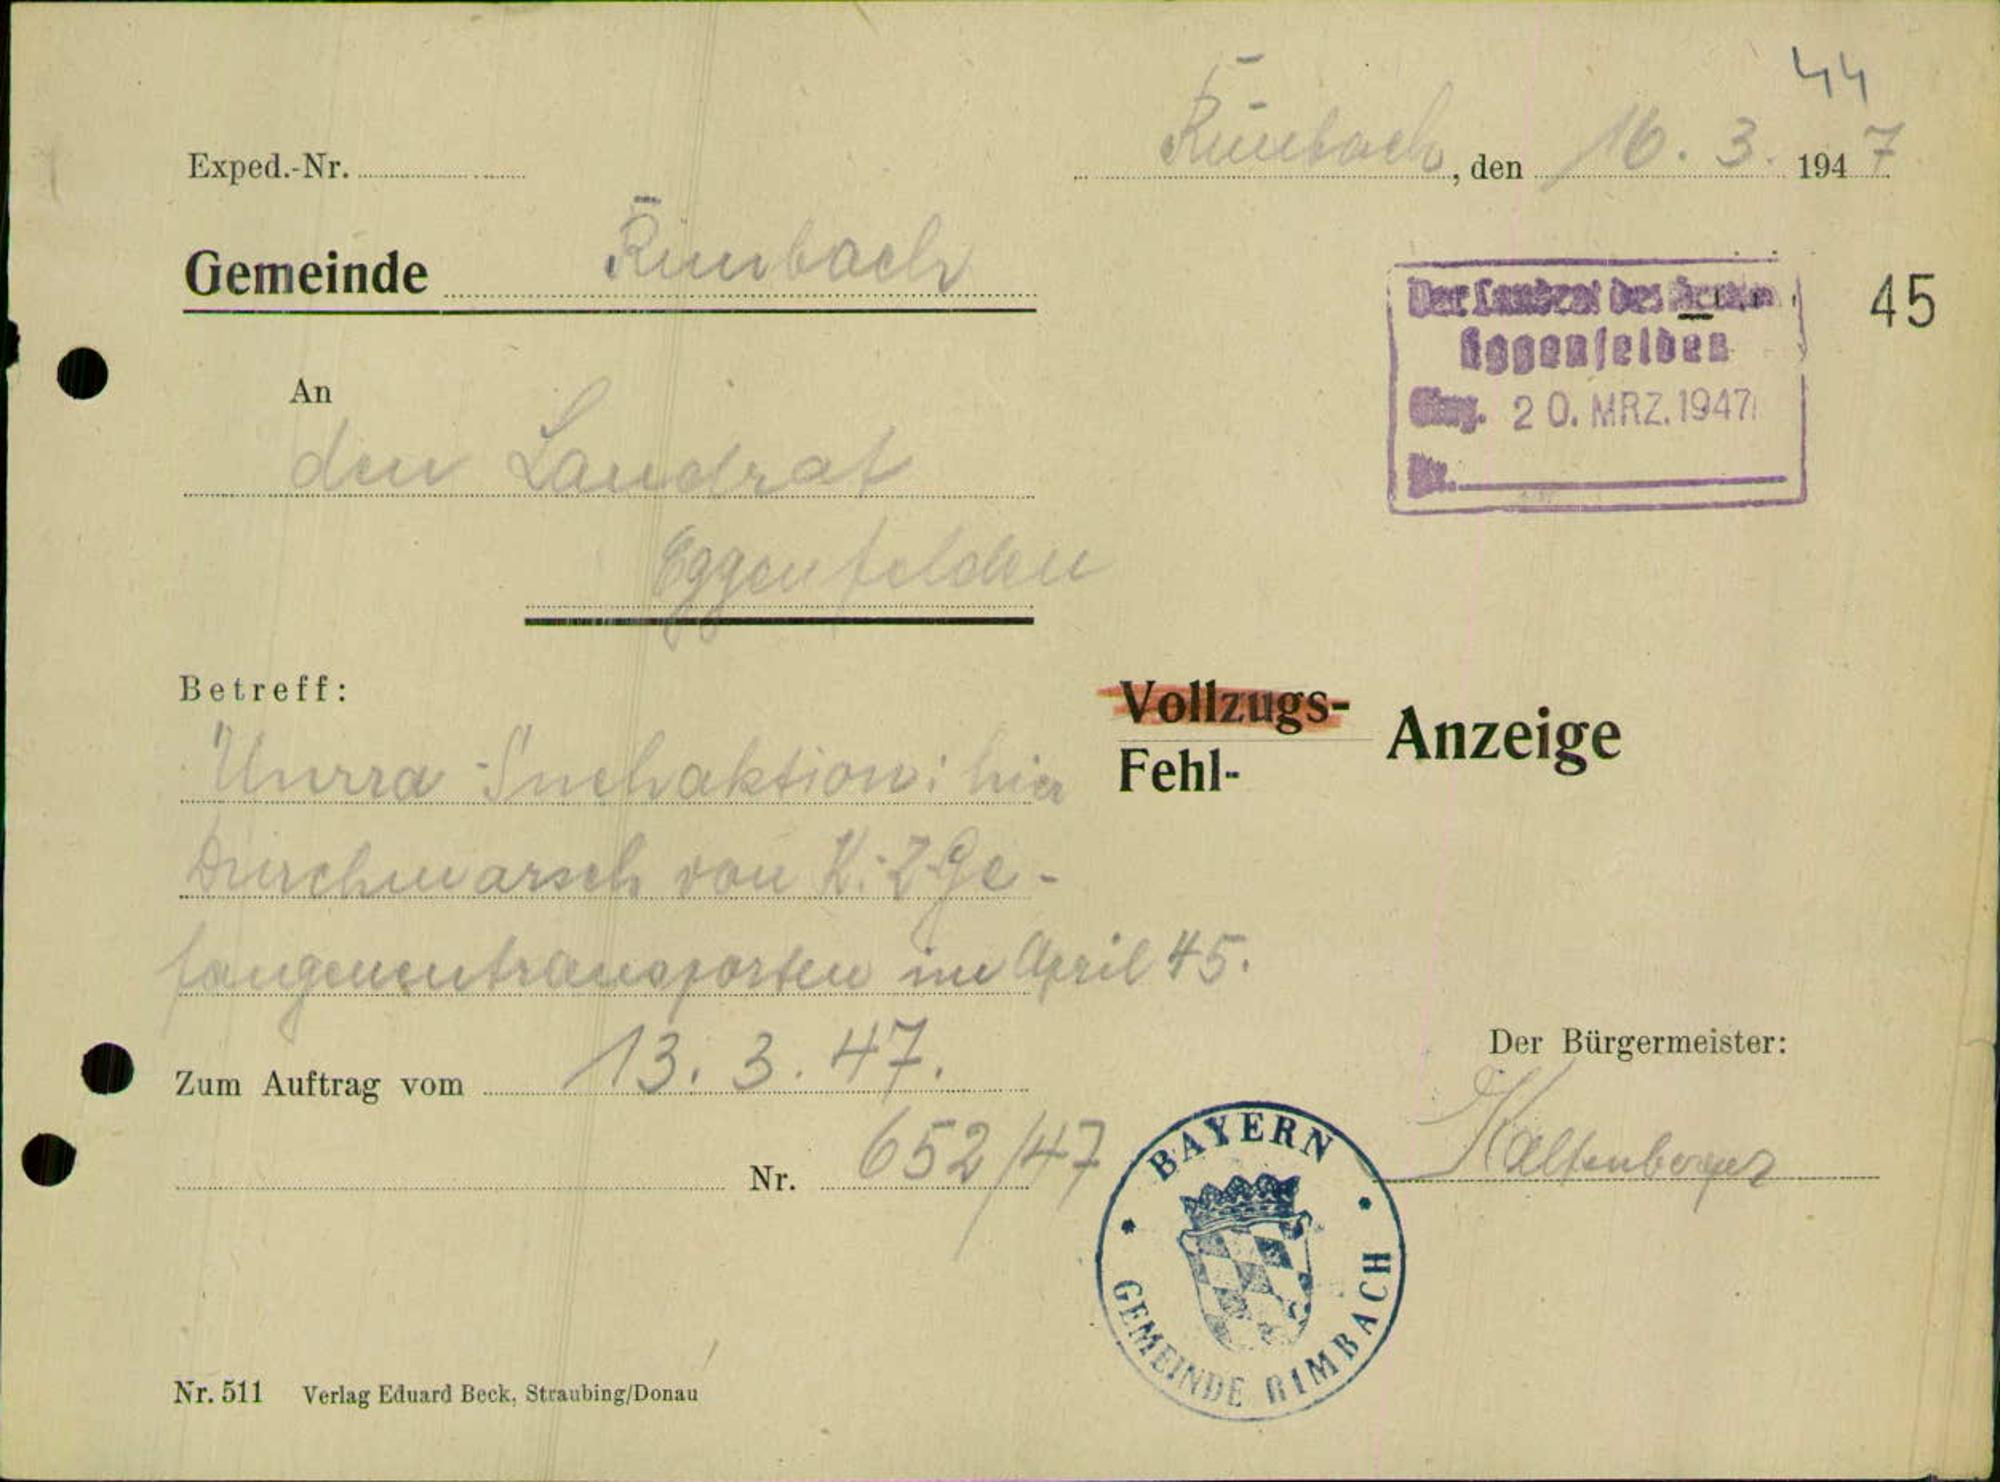 44
Exped.-Nr.
Rimbach, den 16. 3. 1947
Gemeinde Rimbach
Der Landrat des
Eggenfelden
Eing. 20. MRZ. 1947
Nr.
45
An
den Landrat
Eggenfelden
Betreff:
Vollzugs-
Fehl-
Anzeige
Unrra-Suchaktion: hier
Durchmarsch von K.-Z-Ge-
fangenentransporten im April 45.
Zum Auftrag vom 13. 3. 47.
Nr. 652/47
Der Bürgermeister:
Kaltenberger
BAYERN
GEMEINDE RIMBACH
Nr. 511 Verlag Eduard Beck, Straubing/Donau